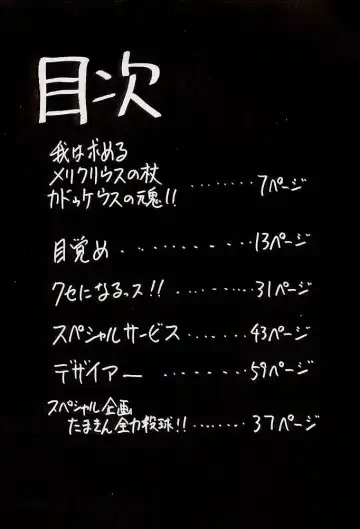 目次
我は求める
メリクリウスの杖
カドゥケウスの魂!! ········ 7ページ
目覚め ·········· 13ページ
クセになるっス!! ········ 31ページ
スペシャルサービス ······ 43ページ
デザイアー ········ 59ページ
スペシャル企画
たまきん全力投球!! ······· 37ページ